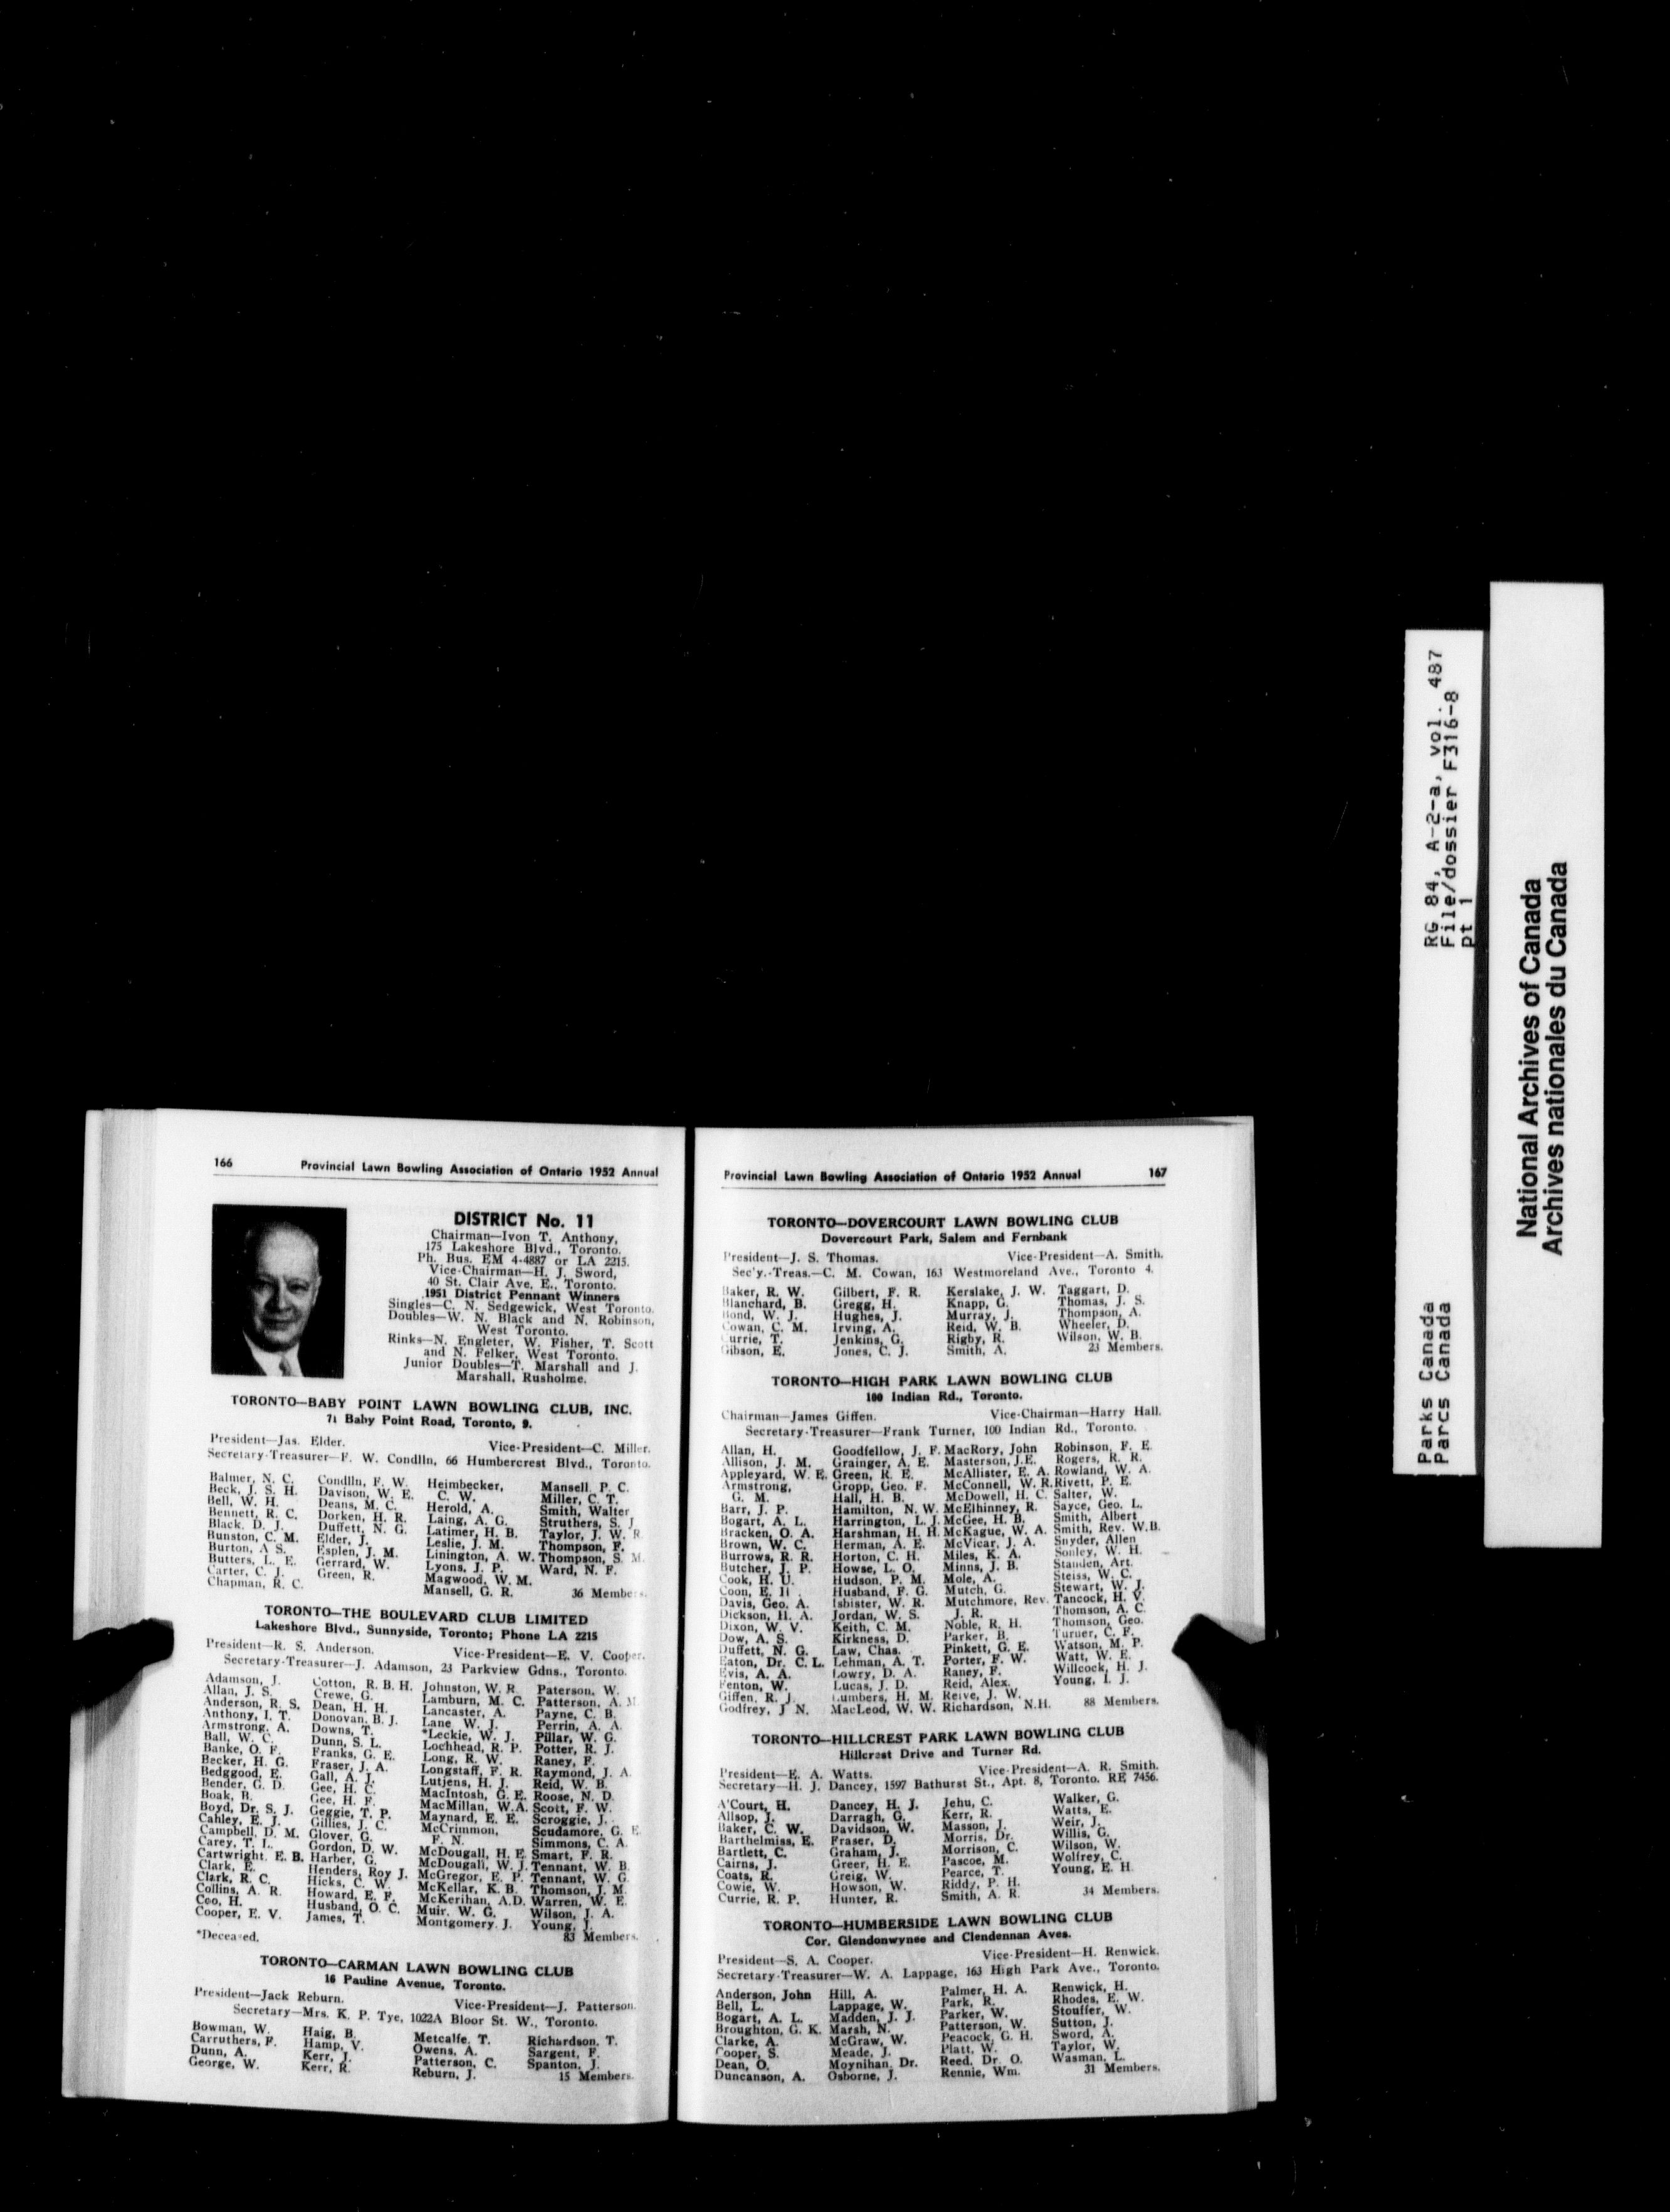 166 Provincial Lawn Bowling Association of Ontario 1952 Annual
DISTRICT No. 11
Chairman—Ivon T. Anthony,
175 Lakeshore Blvd., Toronto.
Ph. Bus. EM 4-4887 or LA 2215.
Vice-Chairman—H. J. Sword,
40 St. Clair Ave. E., Toronto.
1951 District Pennant Winners
Singles—C. N. Sedgewick, West Toronto.
Doubles—W. N. Black and N. Robinson,
West Toronto.
Rinks—N. Engleter, W. Fisher, T. Scott
and N. Felker, West Toronto.
Junior Doubles—T. Marshall and J.
Marshall, Rusholme.
TORONTO—BABY POINT LAWN BOWLING CLUB, INC.
71 Baby Point Road, Toronto, 9.
President—Jas. Elder. Vice-President—C. Miller.
Secretary-Treasurer—F. W. Condlln, 66 Humbercrest Blvd., Toronto.
Balmer, N. C.
Beck, J. S. H.
Bell, W. H.
Bennett, R. C.
Black, D. J.
Bunston, C. M.
Burton, A S.
Butters, L. E.
Carter, C. J.
Chapman, R. C.
Condlln, F. W.
Davison, W. E.
Deans, M. C.
Dorken, H. R.
Duffett, N. G.
Elder, J.
Esplen, J. M.
Gerrard, W.
Green, R.
Heimbecker,
C. W.
Herold, A.
Laing, A. G.
Latimer, H. B.
Leslie, J. M.
Linington, A. W.
Lyons, J. P.
Magwood, W. M.
Mansell, G. R.
Mansell, P. C.
Miller, C. T.
Smith, Walter
Struthers, S. J
Taylor, J. W. R
Thompson, F.
Thompson, S. M.
Ward, N. F.
36 Members.
TORONTO—THE BOULEVARD CLUB LIMITED
Lakeshore Blvd., Sunnyside, Toronto; Phone LA 2215
President—R. S. Anderson. Vice-President—E. V. Cooper.
Secretary-Treasurer—J. Adamson, 23 Parkview Gdns., Toronto.
Adamson, J.
Allan, J. S.
Anderson, R. S.
Anthony, I. T.
Armstrong, A.
Ball, W. C.
Banke, O. F.
Becker, H. G.
Bedggood, E.
Bender, G. D.
Boak, B.
Boyd, Dr. S. J.
Cahley, E. J.
Campbell, D. M.
Carey, T. L.
Cartwright, E. B.
Clark, E.
Clark, R. C.
Collins, A. R.
Coo, H.
Cooper, E. V.
Cotton, R. B. H.
Crewe, G.
Dean, H. H.
Donovan, B. J.
Downs, T.
Dunn, S. L.
Franks, G. E.
Fraser, J. A.
Gall, A. J.
Gee, H. C.
Gee, H. F.
Geggie, T. P.
Gillies, J. C.
Glover, G.
Gordon, D. W.
Harber, G.
Henders, Roy J.
Hicks, C. W.
Howard, E. F.
Husband, O. C.
James, T.
Johnston, W. R.
Lamburn, M. C.
Lancaster, A.
Lane W. J.
*Leckie, W. J.
Lochhead, R. P.
Long, R. W.
Longstaff, F. R.
Lutjens, H. J.
MacIntosh, G. E.
MacMillan, W.A.
Maynard, E. E.
McCrimmon,
F. N.
McDougall, H. E.
McDougall, W. J.
McGregor, E. P.
McKellar, K. B.
McKerihan, A.D.
Muir, W. G.
Montgomery, J.
Paterson, W.
Patterson, A. M
Payne, C. B.
Perrin, A. A.
Pillar, W. G.
Potter, R. J.
Raney, F.
Raymond, J. A.
Reid, W. B.
Roose, N. D.
Scott, F. W.
Scroggie, J.
Scudamore, G. E.
Simmons, C. A.
Smart, F. R.
Tennant, W. B.
Tennant, W. G.
Thomson, J. M.
Warren, W. E.
Wilson, J. A.
Young, J.
83 Members.
*Deceased.
TORONTO—CARMAN LAWN BOWLING CLUB
16 Pauline Avenue, Toronto.
President—Jack Reburn. Vice-President—J. Patterson.
Secretary—Mrs. K. P. Tye, 1022A Bloor St. W., Toronto.
Bowman, W.
Carruthers, F.
Dunn, A.
George, W.
Haig, B.
Hamp, V.
Kerr, J.
Kerr, R.
Metcalfe, T.
Owens, A.
Patterson, C.
Reburn, J.
Richardson, T.
Sargent, F.
Spanton, J.
15 Members.
Provincial Lawn Bowling Association of Ontario 1952 Annual 167
TORONTO—DOVERCOURT LAWN BOWLING CLUB
Dovercourt Park, Salem and Fernbank
President—J. S. Thomas. Vice-President—A. Smith.
Sec'y.-Treas.—C. M. Cowan, 163 Westmoreland Ave., Toronto 4.
Baker, R. W.
Blanchard, B.
Bond, W. J.
Cowan, C. M.
Currie, T.
Gibson, E.
Gilbert, F. R.
Gregg, H.
Hughes, J.
Irving, A.
Jenkins, G.
Jones, C. J.
Kerslake, J. W.
Knapp, G.
Murray, J.
Reid, W. B.
Rigby, R.
Smith, A.
Taggart, D.
Thomas, J. S.
Thompson, A.
Wheeler, D.
Wilson, W. B.
23 Members.
TORONTO—HIGH PARK LAWN BOWLING CLUB
100 Indian Rd., Toronto.
Chairman—James Giffen. Vice-Chairman—Harry Hall.
Secretary-Treasurer—Frank Turner, 100 Indian Rd., Toronto.
Allan, H.
Allison, J. M.
Appleyard, W. E.
Armstrong,
G. M.
Barr, J. P.
Bogart, A. L.
Bracken, O. A.
Brown, W. C.
Burrows, R. R.
Butcher, J. P.
Cook, H. U.
Coon, E. H
Davis, Geo. A.
Dickson, H. A.
Dixon, W. V.
Dow, A. S.
Duffett, N. G.
Eaton, Dr. C. L.
Evis, A. A.
Fenton, W.
Giffen, R. J.
Godfrey, J N.
Goodfellow, J. F.
Grainger, A. E.
Green, R. E.
Gropp, Geo. F.
Hall, H. B.
Hamilton, N. W.
Harrington, L. J.
Harshman, H. H.
Herman, A. E.
Horton, C. H.
Howse, L. O.
Hudson, P. M.
Husband, F. G.
Isbister, W. R.
Jordan, W. S.
Keith, C. M.
Kirkness, D.
Law, Chas.
Lehman, A. T.
Lowry, D. A.
Lucas, J. D.
Lumbers, H. M.
MacLeod, W. W.
MacRory, John
Masterson, J.E.
McAllister, E. A.
McConnell, W. R.
McDowell, H. C.
McElhinney, R.
McGee, H. B.
McKague, W. A.
McVicar, J. A.
Miles, K. A.
Minns, J. B.
Mole, A.
Mutch, G.
Mutchmore, Rev.
J. R.
Noble, R. H.
Parker, B.
Pinkett, G. E.
Porter, F. W.
Raney, F.
Reid, Alex.
Reive, J. W.
Richardson, N.H.
Robinson, F. E.
Rogers, R. R.
Rowland, W. A.
Rivett, P. E.
Salter, W.
Sayce, Geo. L.
Smith, Albert
Smith, Rev. W.B.
Snyder, Allen
Sonley, W. H.
Standen, Art.
Steiss, W. C.
Stewart, W. J.
Tancock, H. V.
Thomson, A. C.
Thomson, Geo.
Turner, C. F.
Watson, M. P.
Watt, W. E.
Willcock, H. J.
Young, I. J.
88 Members.
TORONTO—HILLCREST PARK LAWN BOWLING CLUB
Hillcrest Drive and Turner Rd.
President—E. A. Watts. Vice-President—A. R. Smith.
Secretary—H. J. Dancey, 1597 Bathurst St., Apt. 8, Toronto. RE 7456.
A'Court, H.
Allsop, J.
Baker, C. W.
Barthelmiss, E.
Bartlett, C.
Cairns, J.
Coats, R.
Cowie, W.
Currie, R. P.
Dancey, H. J.
Darragh, G.
Davidson, W.
Fraser, D.
Graham, J.
Greer, H. E.
Greig, W.
Howson, W.
Hunter, R.
Jehu, C.
Kerr, R.
Masson, J.
Morris, Dr.
Morrison, C.
Pascoe, M.
Pearce, T.
Riddy, P. H.
Smith, A. R.
Walker, G.
Watts, E.
Weir, J.
Willis, G.
Wilson, W.
Wolfrey, C.
Young, E. H.
34 Members.
TORONTO—HUMBERSIDE LAWN BOWLING CLUB
Cor. Glendonwynee and Clendennan Aves.
President—S. A. Cooper. Vice-President—H. Renwick.
Secretary-Treasurer—W. A. Lappage, 163 High Park Ave., Toronto.
Anderson, John
Bell, L.
Bogart, A. L.
Broughton, G. K.
Clarke, A.
Cooper, S.
Dean, O.
Duncanson, A.
Hill, A.
Lappage, W.
Madden, J. J.
Marsh, N.
McGraw, W.
Meade, J.
Moynihan, Dr.
Osborne, J.
Palmer, H. A.
Park, R.
Parker, W.
Patterson, W.
Peacock, G. H.
Platt, W.
Reed, Dr. O.
Rennie, Wm.
Renwick, H.
Rhodes, E. W.
Stouffer, W.
Sutton, J.
Sword, A.
Taylor, W.
Wasman, L.
31 Members.
RG 84, A-2-a, vol. 487
File/dossier F316-8
pt 1
Parks Canada
Parcs Canada
National Archives of Canada
Archives nationales du Canada